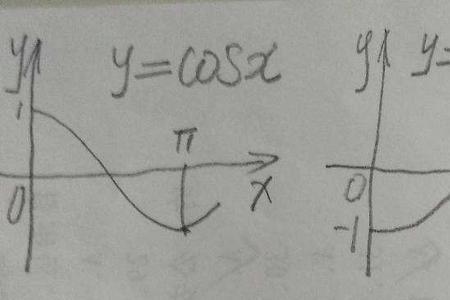 y
y=cosx
1
π
0
x
y
y=
0
-1